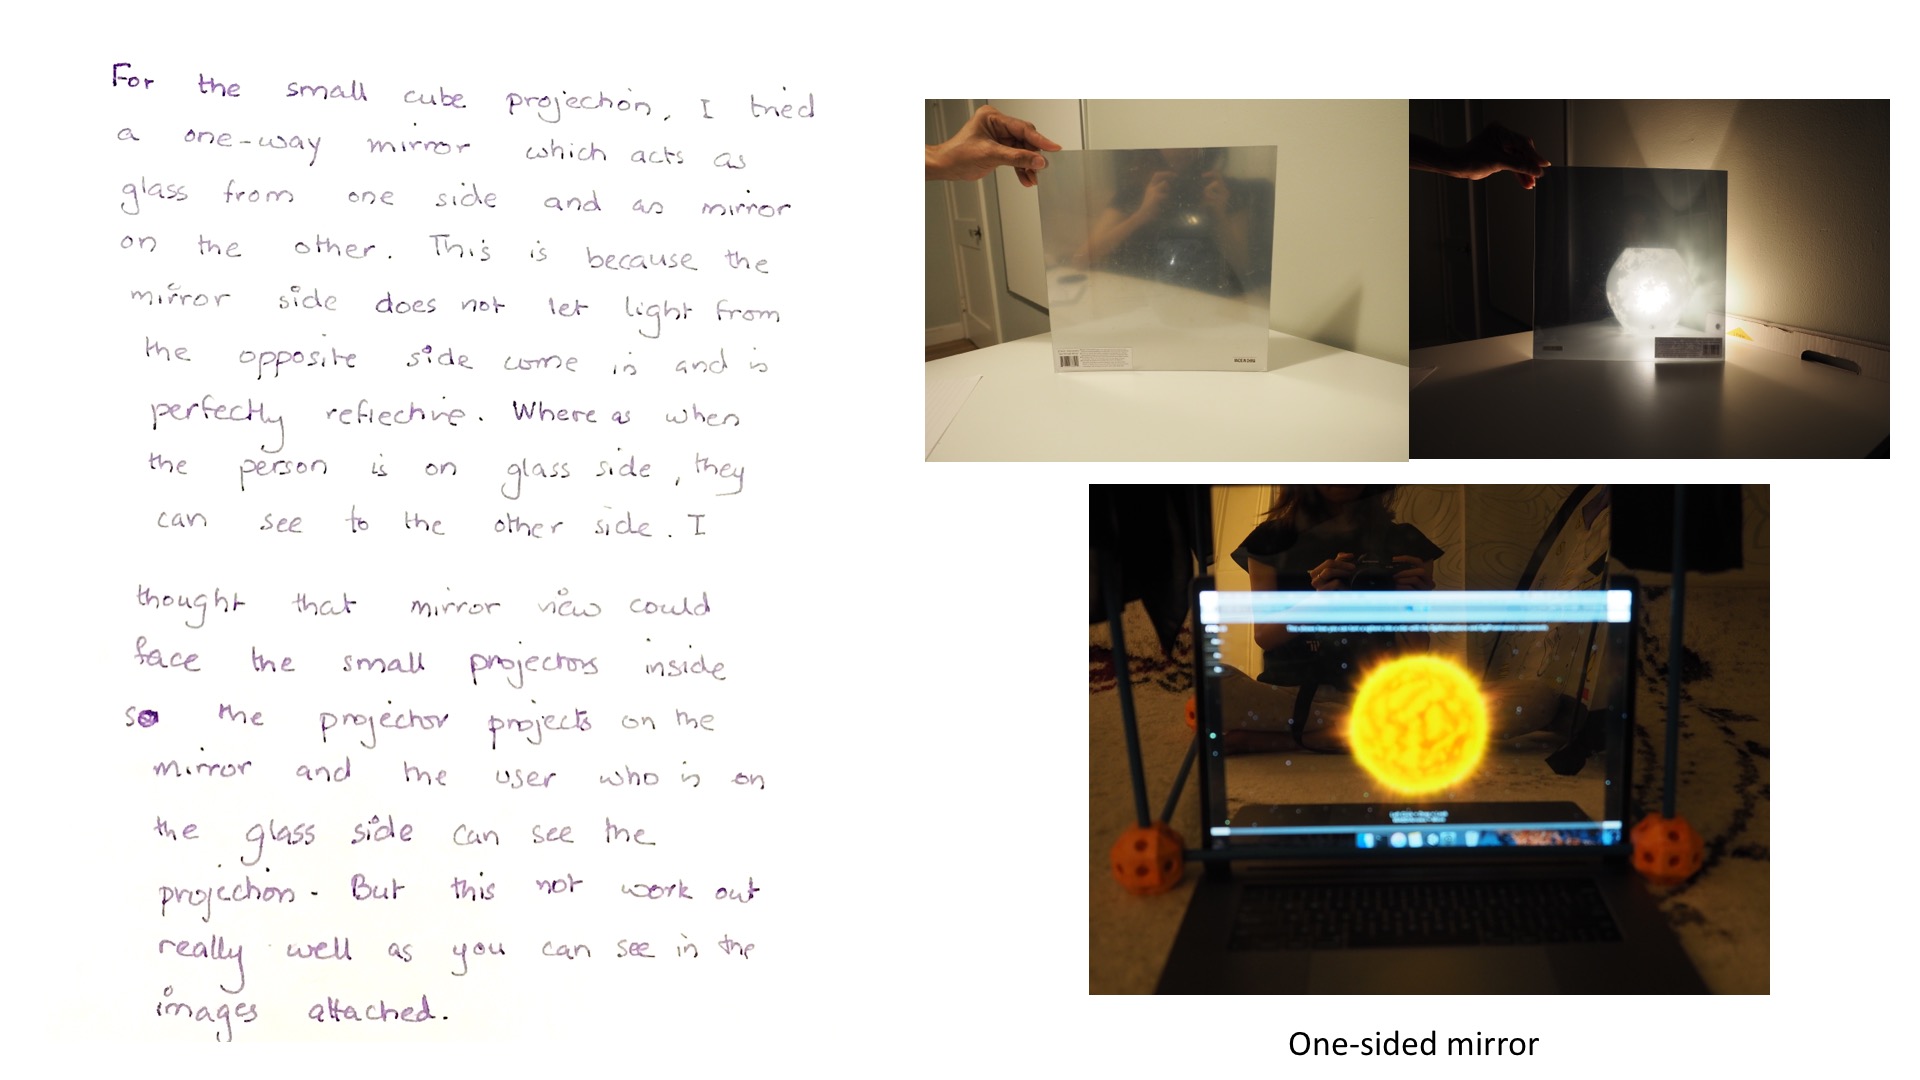 For the small cube projection, I tried
a one-way mirror which acts as
glass from one side and as mirror
on the other. This is because the
mirror side does not let light from
the opposite side come in and is
perfectly reflective. Where as when
the person is on glass side, they
can see to the other side. I
thought that mirror view could
face the small projectors inside
so the projector projects on the
mirror and the user who is on
the glass side can see the
projection. But this not work out
really well as you can see in the
images attached.
MADE IN CHINA
One-sided mirror